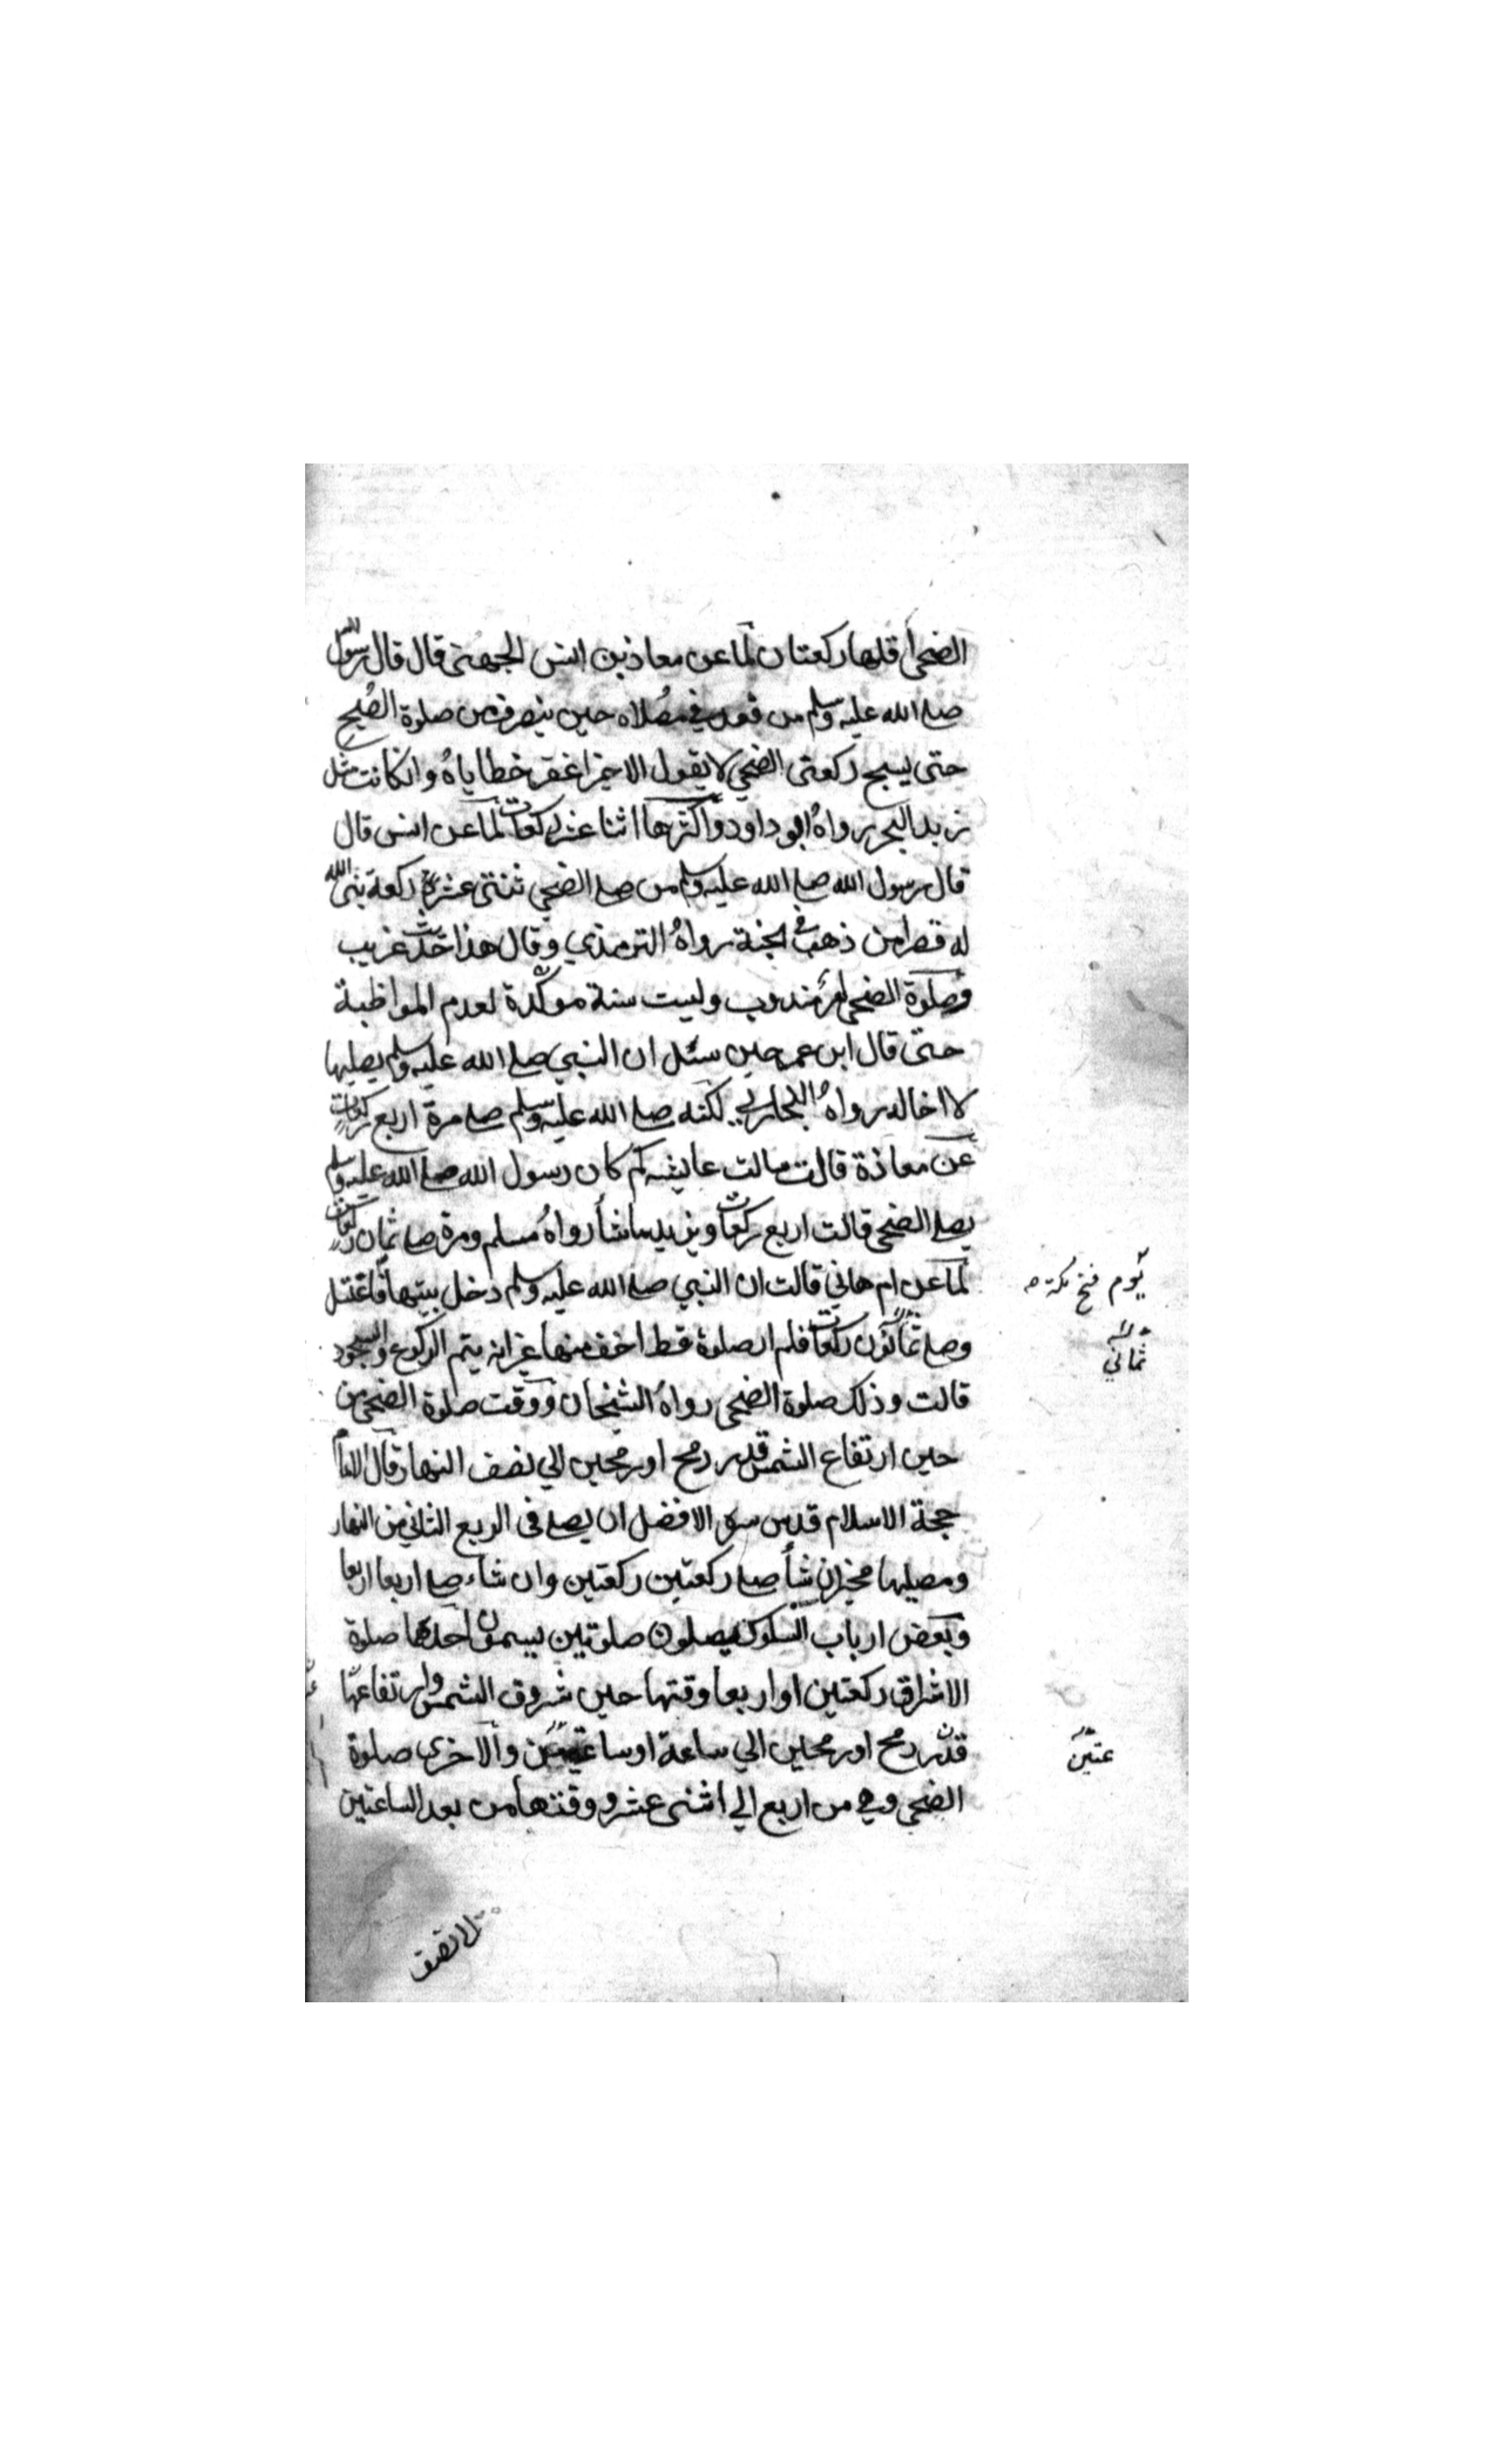 الضحى اقلها ركعتان لما عن معاذ بن انس الجهنى قال قال رسول الله
صلى الله عليه وسلم من قعد في مصلاه حين ينصرف من صلوة الصبح
حتى يسبح ركعتى الضحى لا يقول الا خيرا غفر خطاياه وان كانت مثل
زبد البحر رواه ابو داود واكثرها اثنا عشر ركعات لما عن انس قال
قال رسول الله صلى الله عليه وسلم من صلى الضحى ثنتى عشرة ركعة بنى الله
له قصرا من ذهب في الجنة رواه الترمذي وقال هذا حديث غريب
وصلوة الضحى مندوب وليست سنة موكدة لعدم المواظبة
حتى قال ابن عمر حين سئل ان النبي صلى الله عليه وسلم يصليها
لا اخاله رواه البخاري لكنه صلى الله عليه وسلم صلى مرة اربع ركعات
عن معاذة قالت سالت عايشه كم كان رسول الله صلى الله عليه وسلم
يصلى الضحى قالت اربع ركعات ويزيد ما شأ رواه مسلم ومرة صلى ثمان ركعات
لما عن ام هاني قالت ان النبي صلى الله عليه وسلم دخل بيتها فاغتسل
يوم فتح مكة
وصلى ركعات فلم ار صلوة قط اخف منها غير انه يتم الركوع والسجود
ثماني
قالت وذلك صلوة الضحى رواه الشيخان ووقت صلوة الضحى من
حين ارتفاع الشمس قدر رمح او رمحين الي نصف النهار قال الامام
حجة الاسلام قدس سره الافضل ان يصلى فى الربع الثاني من النهار
ومصليها مخير ان شأ صلى ركعتين ركعتين وان شاء صلى اربعا اربعا
وبعض ارباب السلوك يصلون صلوتين يسمون احدهما صلوة
الاشراق ركعتين او اربعا وقتها حين شروق الشمس وارتفاعها
قدر رمح او رمحين الي ساعة او ساعتين والاخرى صلوة
عتين
الضحى وهي من اربع الي اثنى عشر ووقتها من بعد الساعتين